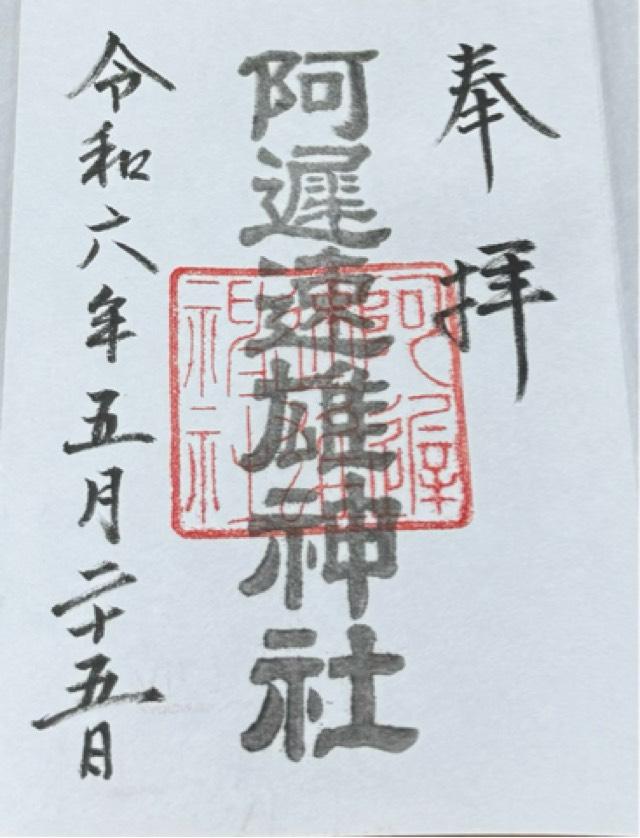 奉拝
阿遅速雄神社
令和六年五月二十五日